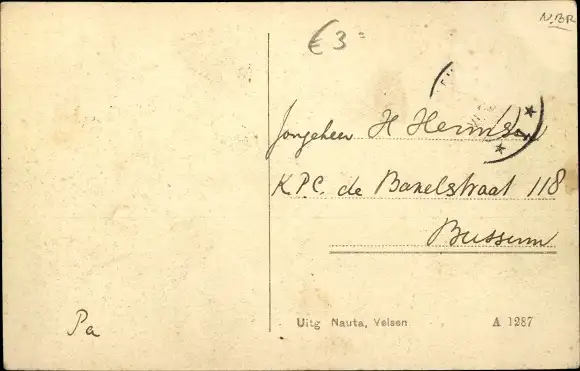 N.BR
€ 3=
Jongeheer H Hermsen
K.P.C. de Bazelstraat 118
Bussum
Pa
Uitg Nauta, Velsen A 1287